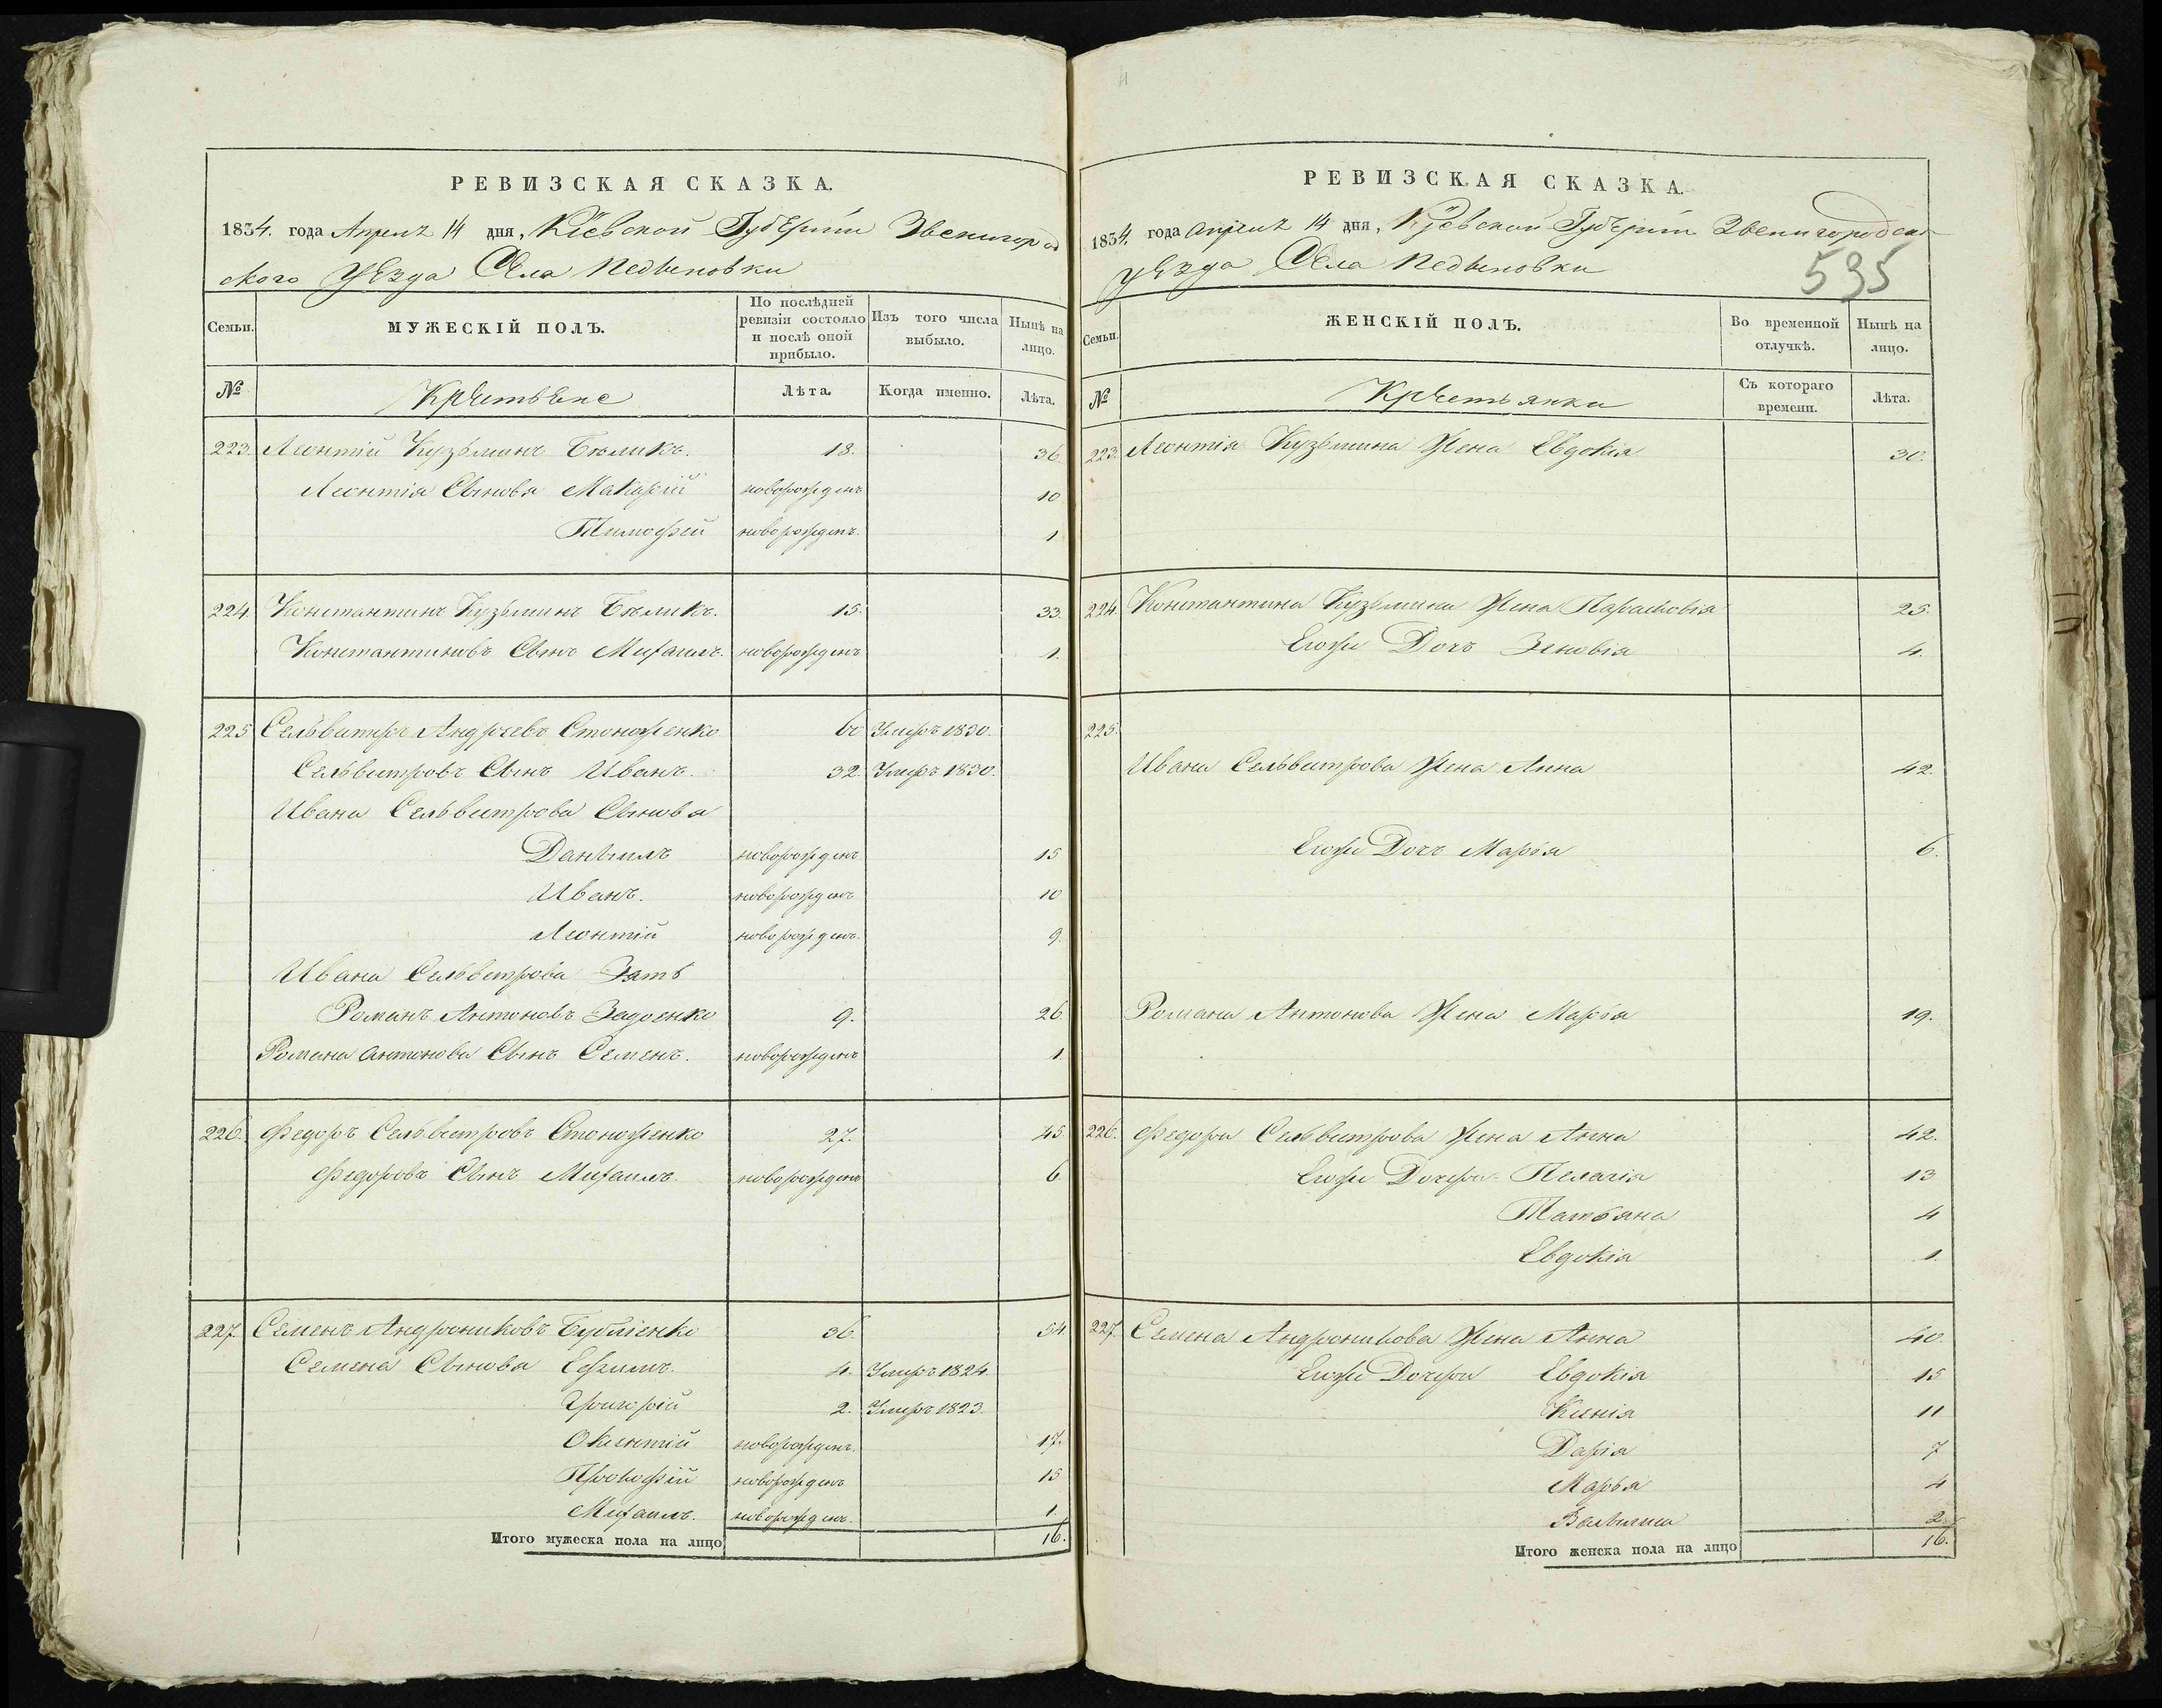 РЕВИЗСКАЯ СКАЗКА.
1834. года Апреля 14 дня, Кіевской Губерніи Звенигород
ского уезда Села Педыновки
Семьи.
МУЖЕСКІЙ ПОЛЪ.
По послѣдней ревизіи состояло и послѣ оной прибыло.
Изъ того числа выбыло.
Нынѣ на лицо.
№
Крестьяне
Лѣта.
Когда именно.
Лѣта.
223. Леонтій Кузьминъ Бѣликъ. 18. 36
Леонтія Сыновья Макарій новорожденъ 10
Тимофей новорожденъ. 1
224. Константинъ Кузьминъ Бѣликъ. 15. 33.
Константиновъ Сынъ Михаилъ. новорожденъ 1.
225 Сельвитръ Андреевъ Стоноженко 60 Умеръ 1830.
Сельвитровъ Сынъ Иванъ. 32. Умеръ 1830.
Ивана Сельвитрова Сыновья
Даніилъ новорожденъ 15
Иванъ. новорожденъ 10
Леонтій новорожденъ. 9.
Ивана Сельвитрова Зять
Романъ Антоновъ 9. 26
Романа Антонова Сынъ Семенъ. новорожденъ 1.
226. Федоръ Сельвитровъ Стоноженко 27. 45.
Федоровъ Сынъ Михаилъ. новорожденъ 6
227. Семенъ Андрониковъ Бубліенко 36. 54
Семена Сыновья Ефимъ. 4. Умеръ 1824.
Григорій 2. Умеръ 1823.
новорожденъ. 17.
Прокофій новорожденъ 15
Михаилъ. новорожденъ. 1.
Итого мужеска пола на лицо 16.
РЕВИЗСКАЯ СКАЗКА.
1834. года Апреля 14 дня, Кіевской Губерніи Звенигородска
уезда Села Педыновки
535
Семьи.
ЖЕНСКІЙ ПОЛЪ.
Во временной отлучкѣ.
Нынѣ на лицо.
№
Крестьянки
Съ котораго времени.
Лѣта.
223. Леонтія Кузьмина Жена Евдокія 30.
224. Константина Кузьмина Жена Парасковія 25.
Егоже Дочь Зеновія 4.
225.
Ивана Сельвитрова Жена Анна 42.
Егоже Дочь Марья 6.
Романа Антонова Жена Марья 19.
226. Федора Сельвитрова Жена Анна 42.
Егоже Дочери Пелагія 13
Татьяна 4
Евдокія 1.
227. Семена Андроникова Жена Анна 40.
Егоже Дочери Евдокія 15
Ксенія 11
Дарія 7
Марья 4
2.
Итого женска пола на лицо 16.